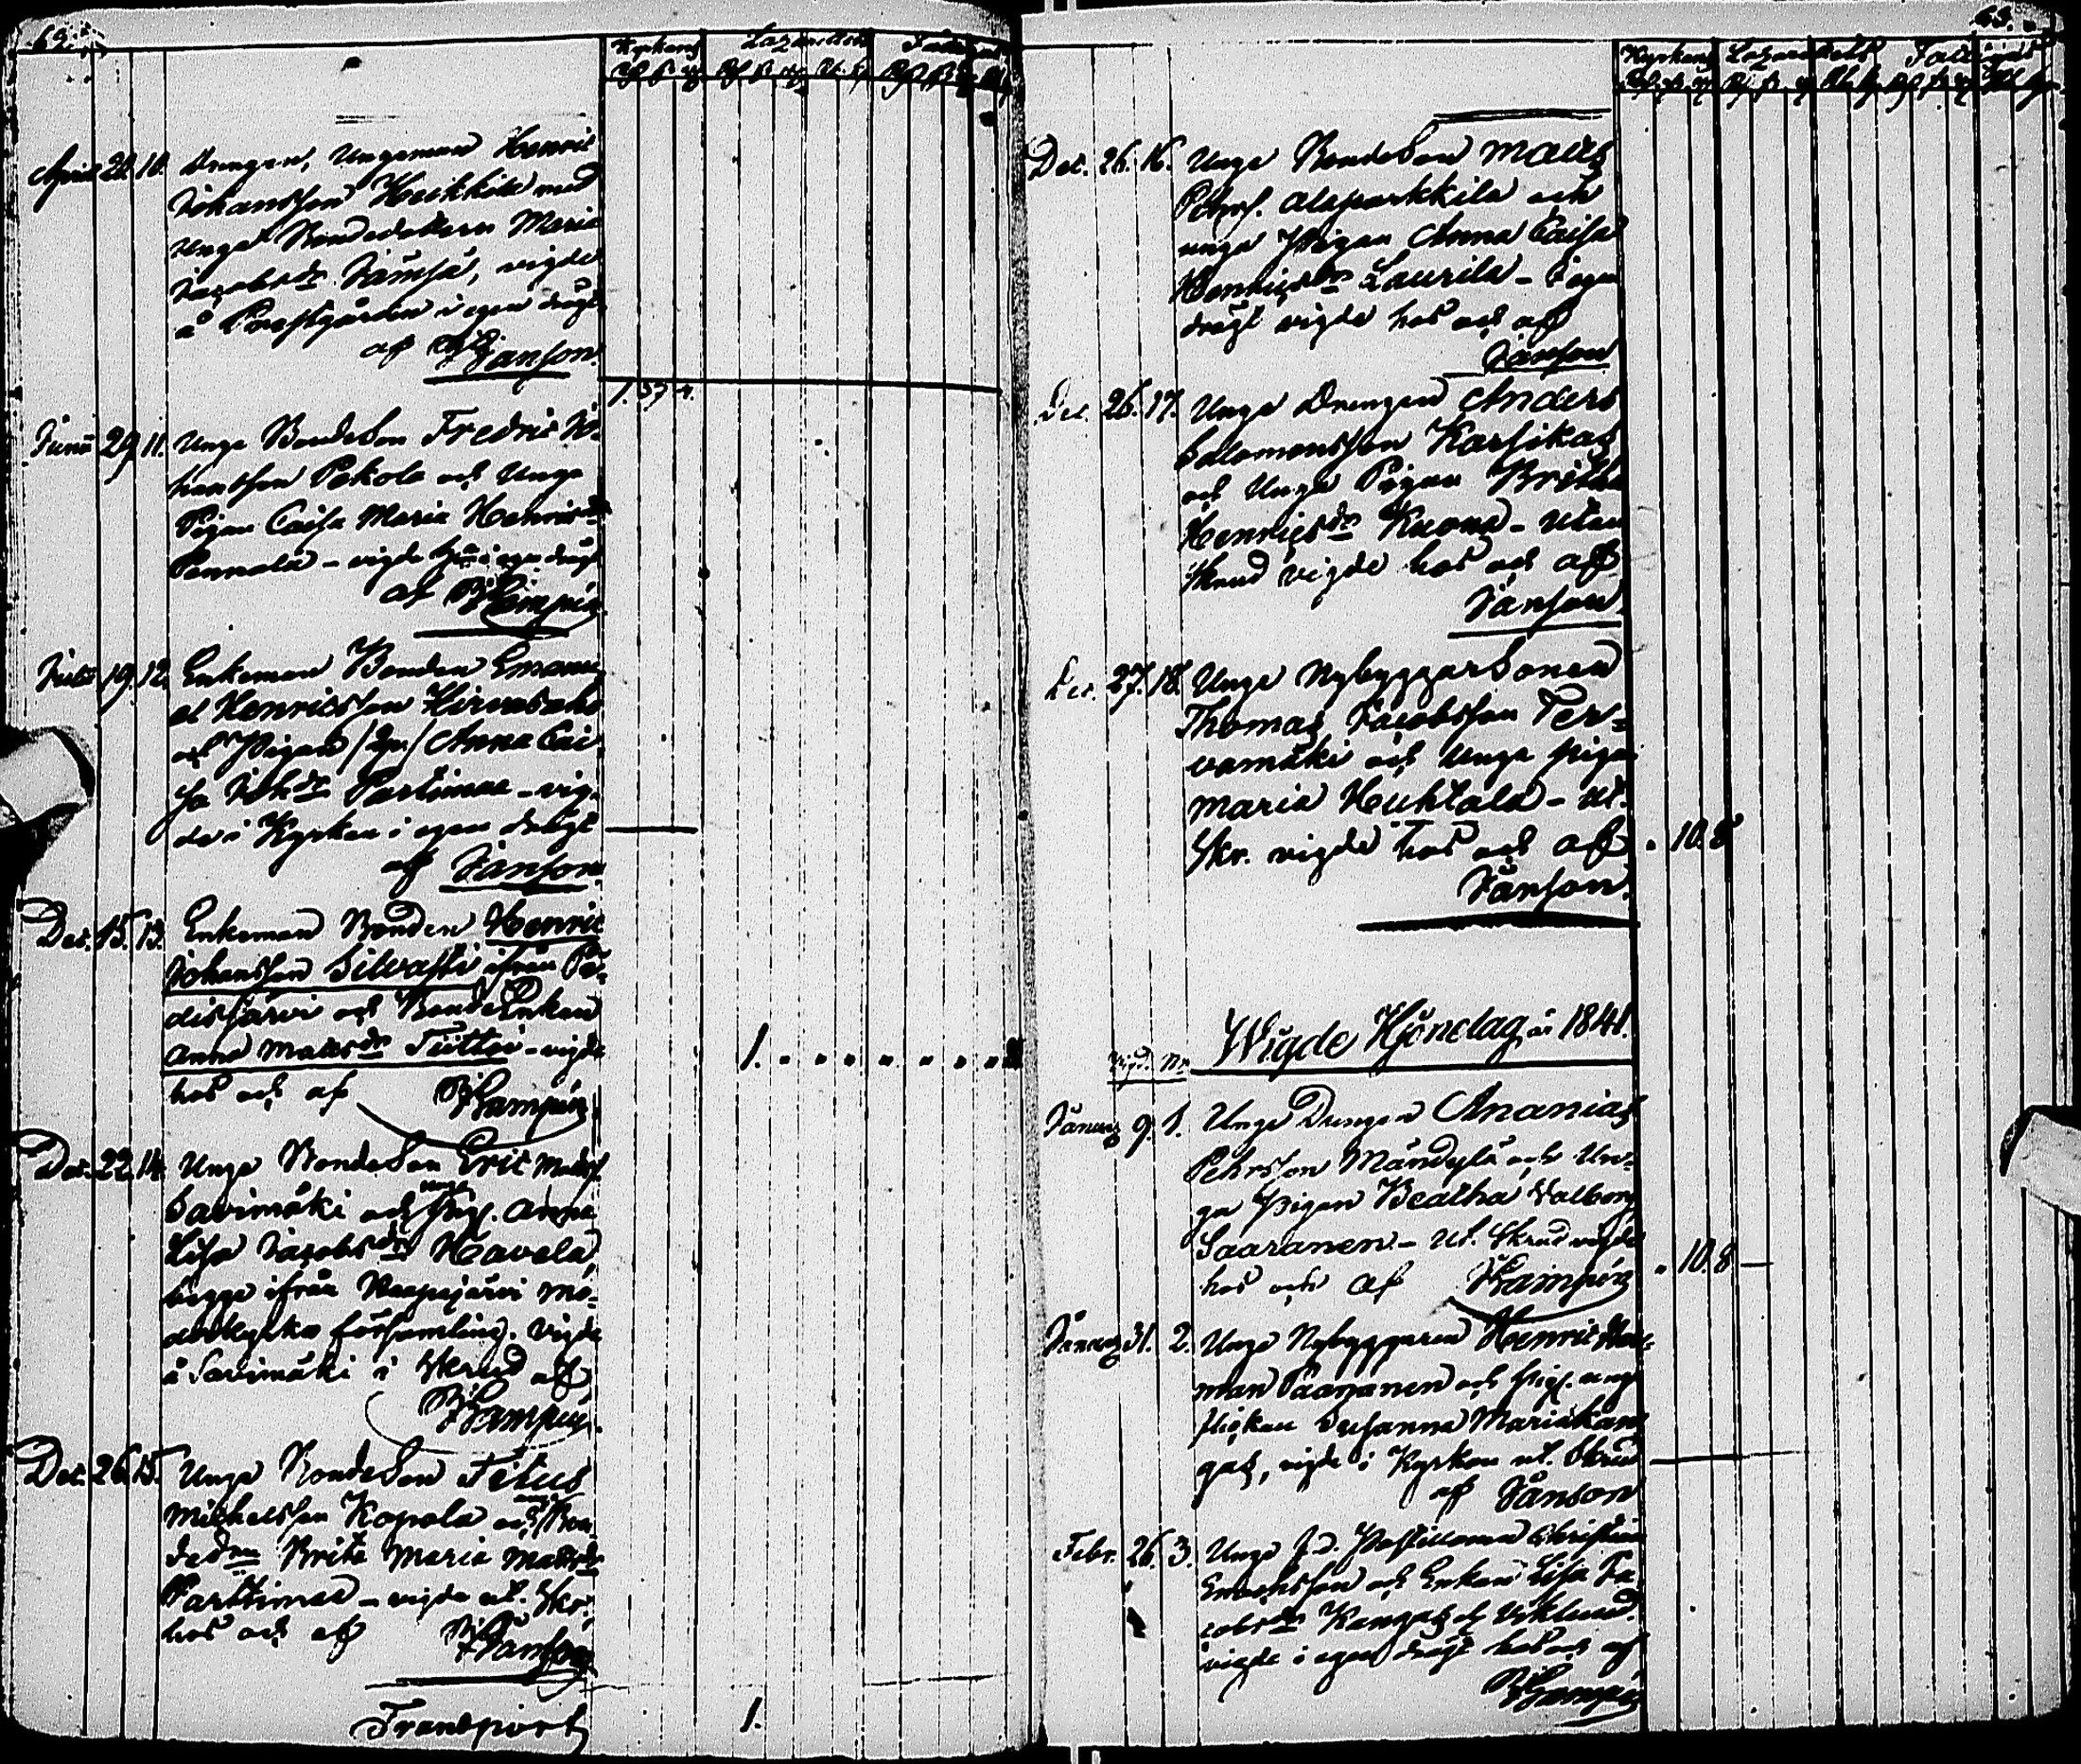 62.
Kyrkans Lazarettets
April 20. 10. Drengen, Ungeman Henric
Johansson Heikkilä med
Unga Bondedottern Maria
Jacobsdr Jämsä, vigde
å Prestgården i egen drägt
af Janson.
Junii 29. 11. Unge BondeSon Fredric Jo-
hansson Pekola och Unga
Pigan Caisa Maria Henricsdr
Pennala - vigde i egen drägt
af
Julii 19. 12. Enkeman Bonden Emanu-
el Henricsson Hirvasoho
och Pigan Anna Cai-
sa Johdr Partimaa - vig-
de i Kyrkan i egen drägt
af Janson
Dec. 15. 13. Enkeman Bonden Henric
Johansson Silvasti ifrån Pe-
disjärvi och BondeEnkan
Anna Matsdr Tiitto - vigde 1.
hos och af
Dec. 22. 14. Unge BondeSon Eric Matss.
Savimäki och unga Pig. Anna
Lisa Jacobsdr Havela,
begge ifrån Haapajärvi mo-
derkyrko församling. Vigde
å Savimäki i Skrud af
Dec. 26. 15. Unge BondeSon Titus
Michelsson Kopola och unga Bon-
dedn Brita Maria Matsdr
Parttimaa - vigde ut. Skr.
hos och af Janson
Transport 1.
63.
Kyrkans Lazarettets Fattigas
Dec. 26. 16. Unge BondeSon Matts
Pehrs. Alaparkkila och
unga Pigan Anna Caisa
Henricsdr Laurila - i egen
drägt vigde hos och af
Janson
Dec. 26. 17. Unge Drengen Anders
Salomonsson Karsikas
och Unga Pigan Britha
Henricsdr Kuona - utan
Skrud vigde hos och af
Janson.
Dec. 27. 18. Unge NybyggarSonen
Thomas Jacobsson Ter-
vamäki och Unga pigan
Maria Huhtala - ut.
Skr. vigde hos och af . 10. 8
Janson.
Wigde Hjonelag år 1841.
Vigd. No.
Januarii 9. 1. Unge Drengen Ananias
Pehrsson Mändylä och Un-
ga Pigan Beatha Valborg
Saaranen - ut. Skrud vigde
hos och af . 10. 8 —
Januarii 31. 2. Unge Nybyggaren Henric Her-
man Paananen och unga
flickan Susanna Maria Kan-
gas, vigde i Kyrkan ut. Skrud
af Janson
Febr. 26. 3. Unge f.d. Postillionen Christian
och Enkan Lisa Ja-
cobsdr Kangas
vigde i egen drägt hos och af